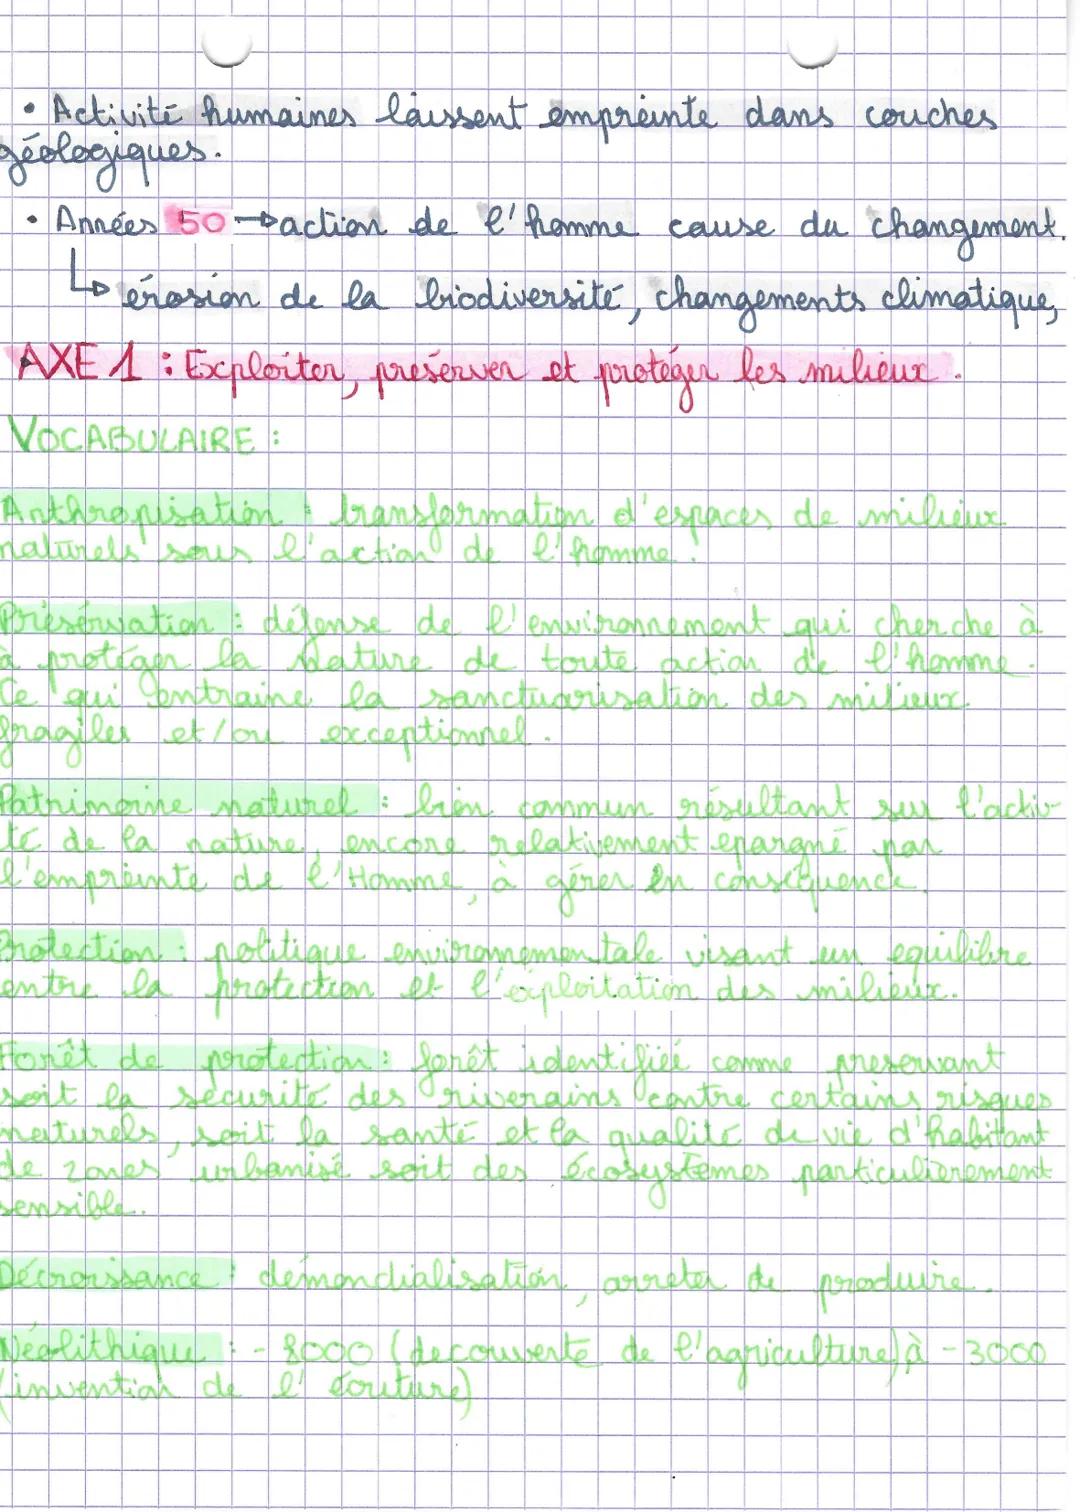 • Activité humaines laissent empreinte dans couches
géologiques.
• Années 50 → action de l'homme cause du changement.
↳ érosion de la biodiversité, changements climatique,
AXE 1 : Exploiter, préserver et protéger les milieux.
VOCABULAIRE :
Anthropisation : transformation d'espaces de milieux
naturels sous l'action de l'homme.
Présérvation : défense de l'environnement qui cherche à
à protéger la Nature de toute action de l'homme.
Ce qui entraine la sanctuarisation des milieux
fragiles et/ou exceptionnel.
Patrimoine naturel : bien commun résultant sur l'activ-
té de la nature, encore relativement epargné par
l'empreinte de l'Homme, à gérer en conséquence.
Protection : politique enviromementale visant un equilibre
entre la protection et l'exploitation des milieux.
Forêt de protection : forêt identifiéé comme preservant
soit la sécurité des riverains contre certains risques
naturels, soit la santé et la qualité de vie d'habitant
de zones urbanisé soit des écosystèmes particulièrement
sensible.
Décroissance : démondialisation, arreter de produire.
Néolithique : - 8000 (decouverte de l'agriculture) à - 3000
(invention de l'écriture)